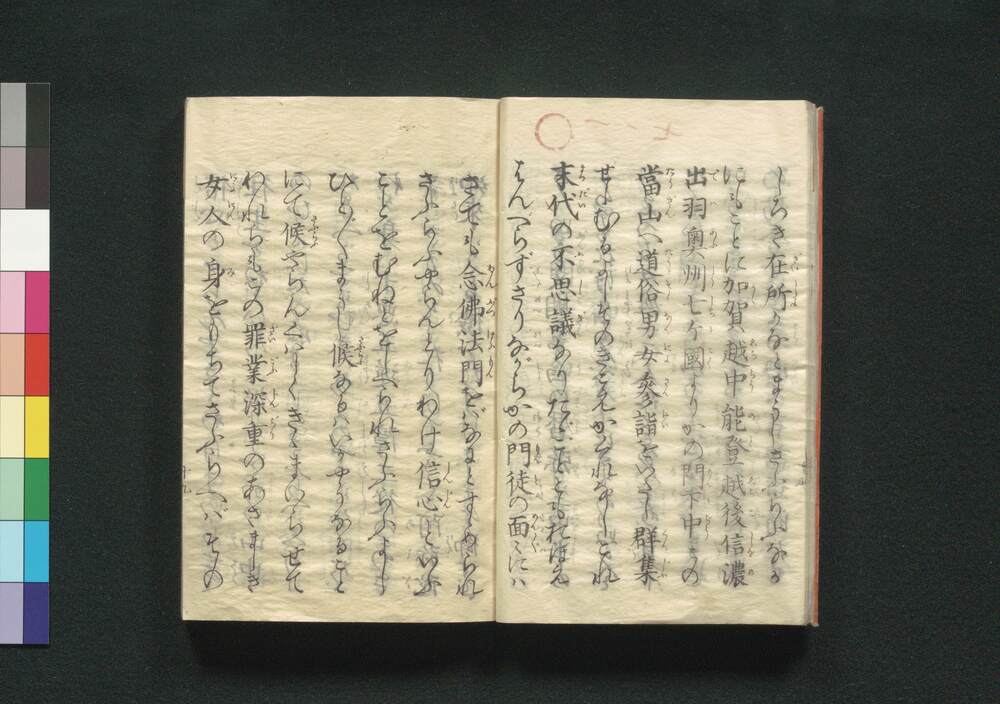 しろき在所かなとまうしさふらふなか
にもことに加賀越中能登越後信濃
出羽奥州七ケ國よりかの門下中この
當山へ道俗男女參詣をいたし群集
せしむるよしそのきこえかくれなしこれ
末代の不思議なりたゞごとともおぼえ
はんべらずさりながらかの門徒の面々には
さても念佛法門をばなにとすゝめられ
さふらふやらんとりわけ信心といふ
ことをむねとをしへられさふらふよし
ひとびとまうし候なるはいかやうなること
にて候やらんくはしくきゝまいらせて
われらもこの罪業深重のあさましき
女人の身をもちてさふらへばその